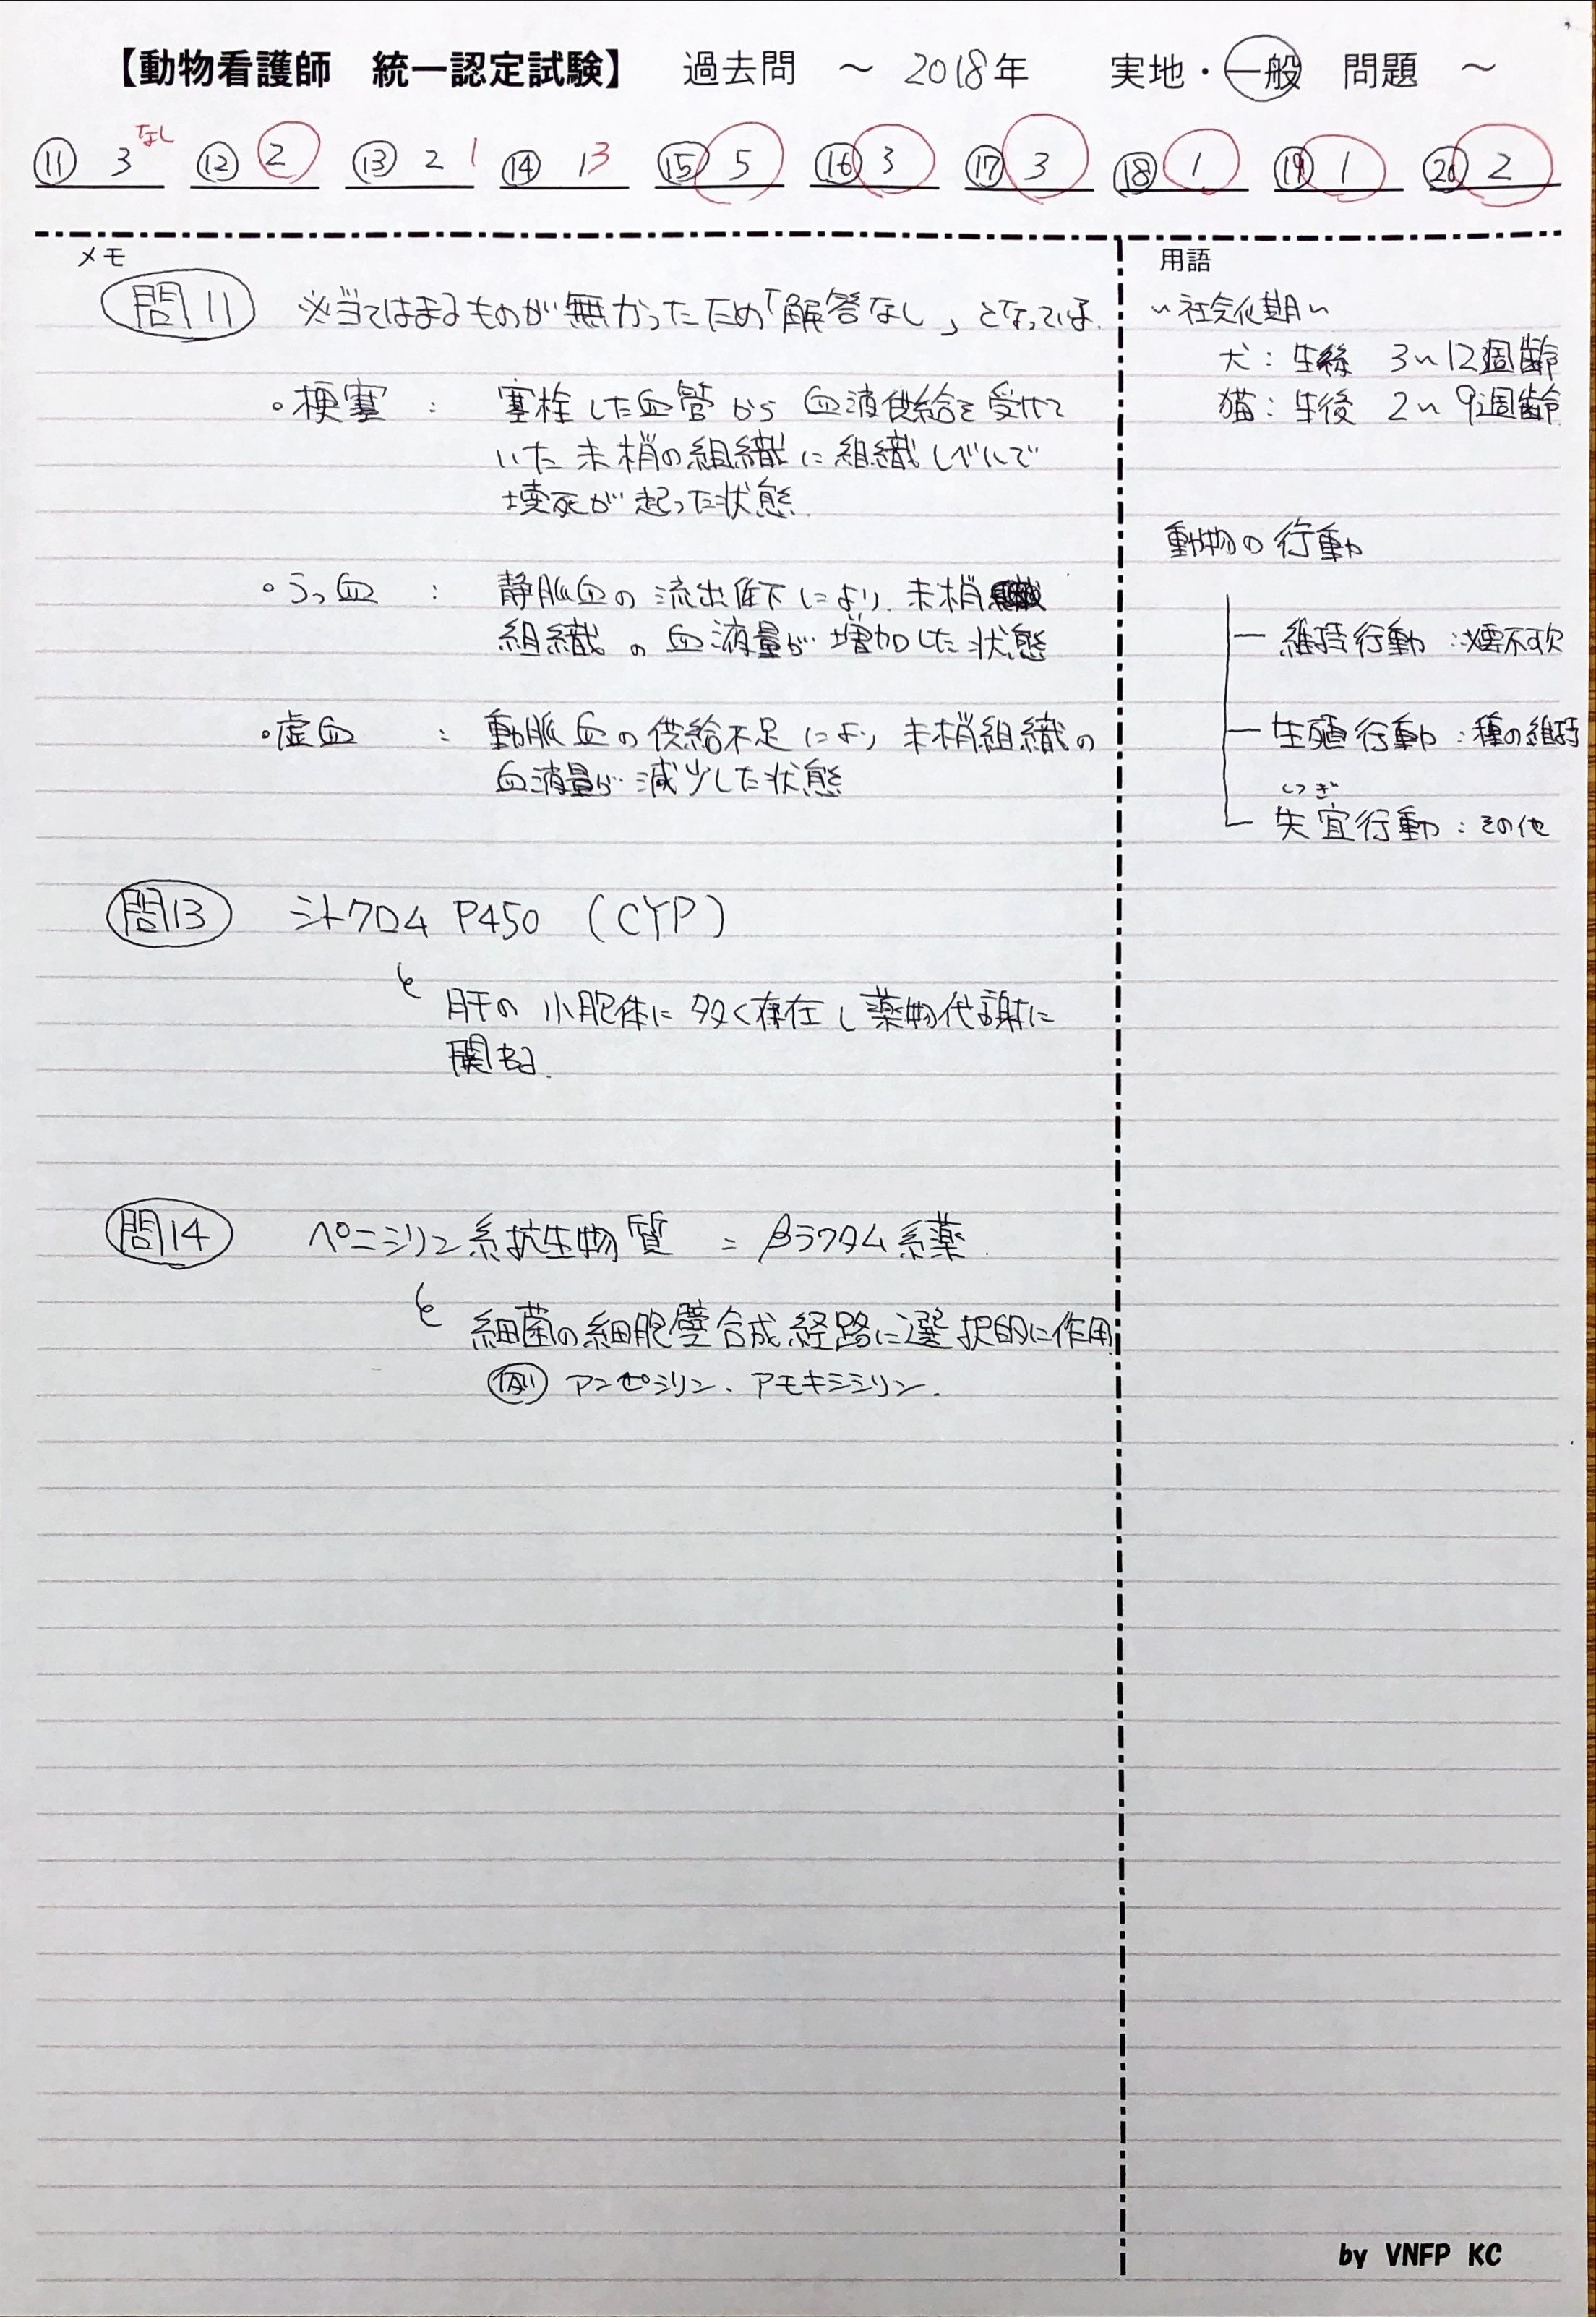 【動物看護師 統一認定試験】 過去問 ～ 2018年 実地・一般 問題 ～
⑪ 3 なし ⑫ 2 ⑬ 2 1 ⑭ 1 3 ⑮ 5 ⑯ 3 ⑰ 3 ⑱ 1 ⑲ 1 ⑳ 2
メモ
問11 ※当てはまるものが無かったため「解答なし」となっている.
・梗塞 : 塞栓した血管から血液供給を受けて
いた末梢の組織に組織レベルで
壊死が起った状態.
・うっ血 : 静脈血の流出低下により.末梢
組織の血液量が増加した状態
・虚血 : 動脈血の供給不足により末梢組織の
血液量が減少した状態
問13 シトクロム P450 (CYP)
肝の小胞体に多く存在し薬物代謝に
関わる.
問14 ペニシリン系抗生物質 = βラクタム系薬.
細菌の細胞壁合成経路に選択的に作用
例 アンピシリン、アモキシシリン.
用語
～社会化期～
犬：生後 3～12週齢
猫：生後 2～9週齢
動物の行動
維持行動：必要不可欠
生殖行動：種の維持
しつぎ
失宜行動：その他
by VNFP KC